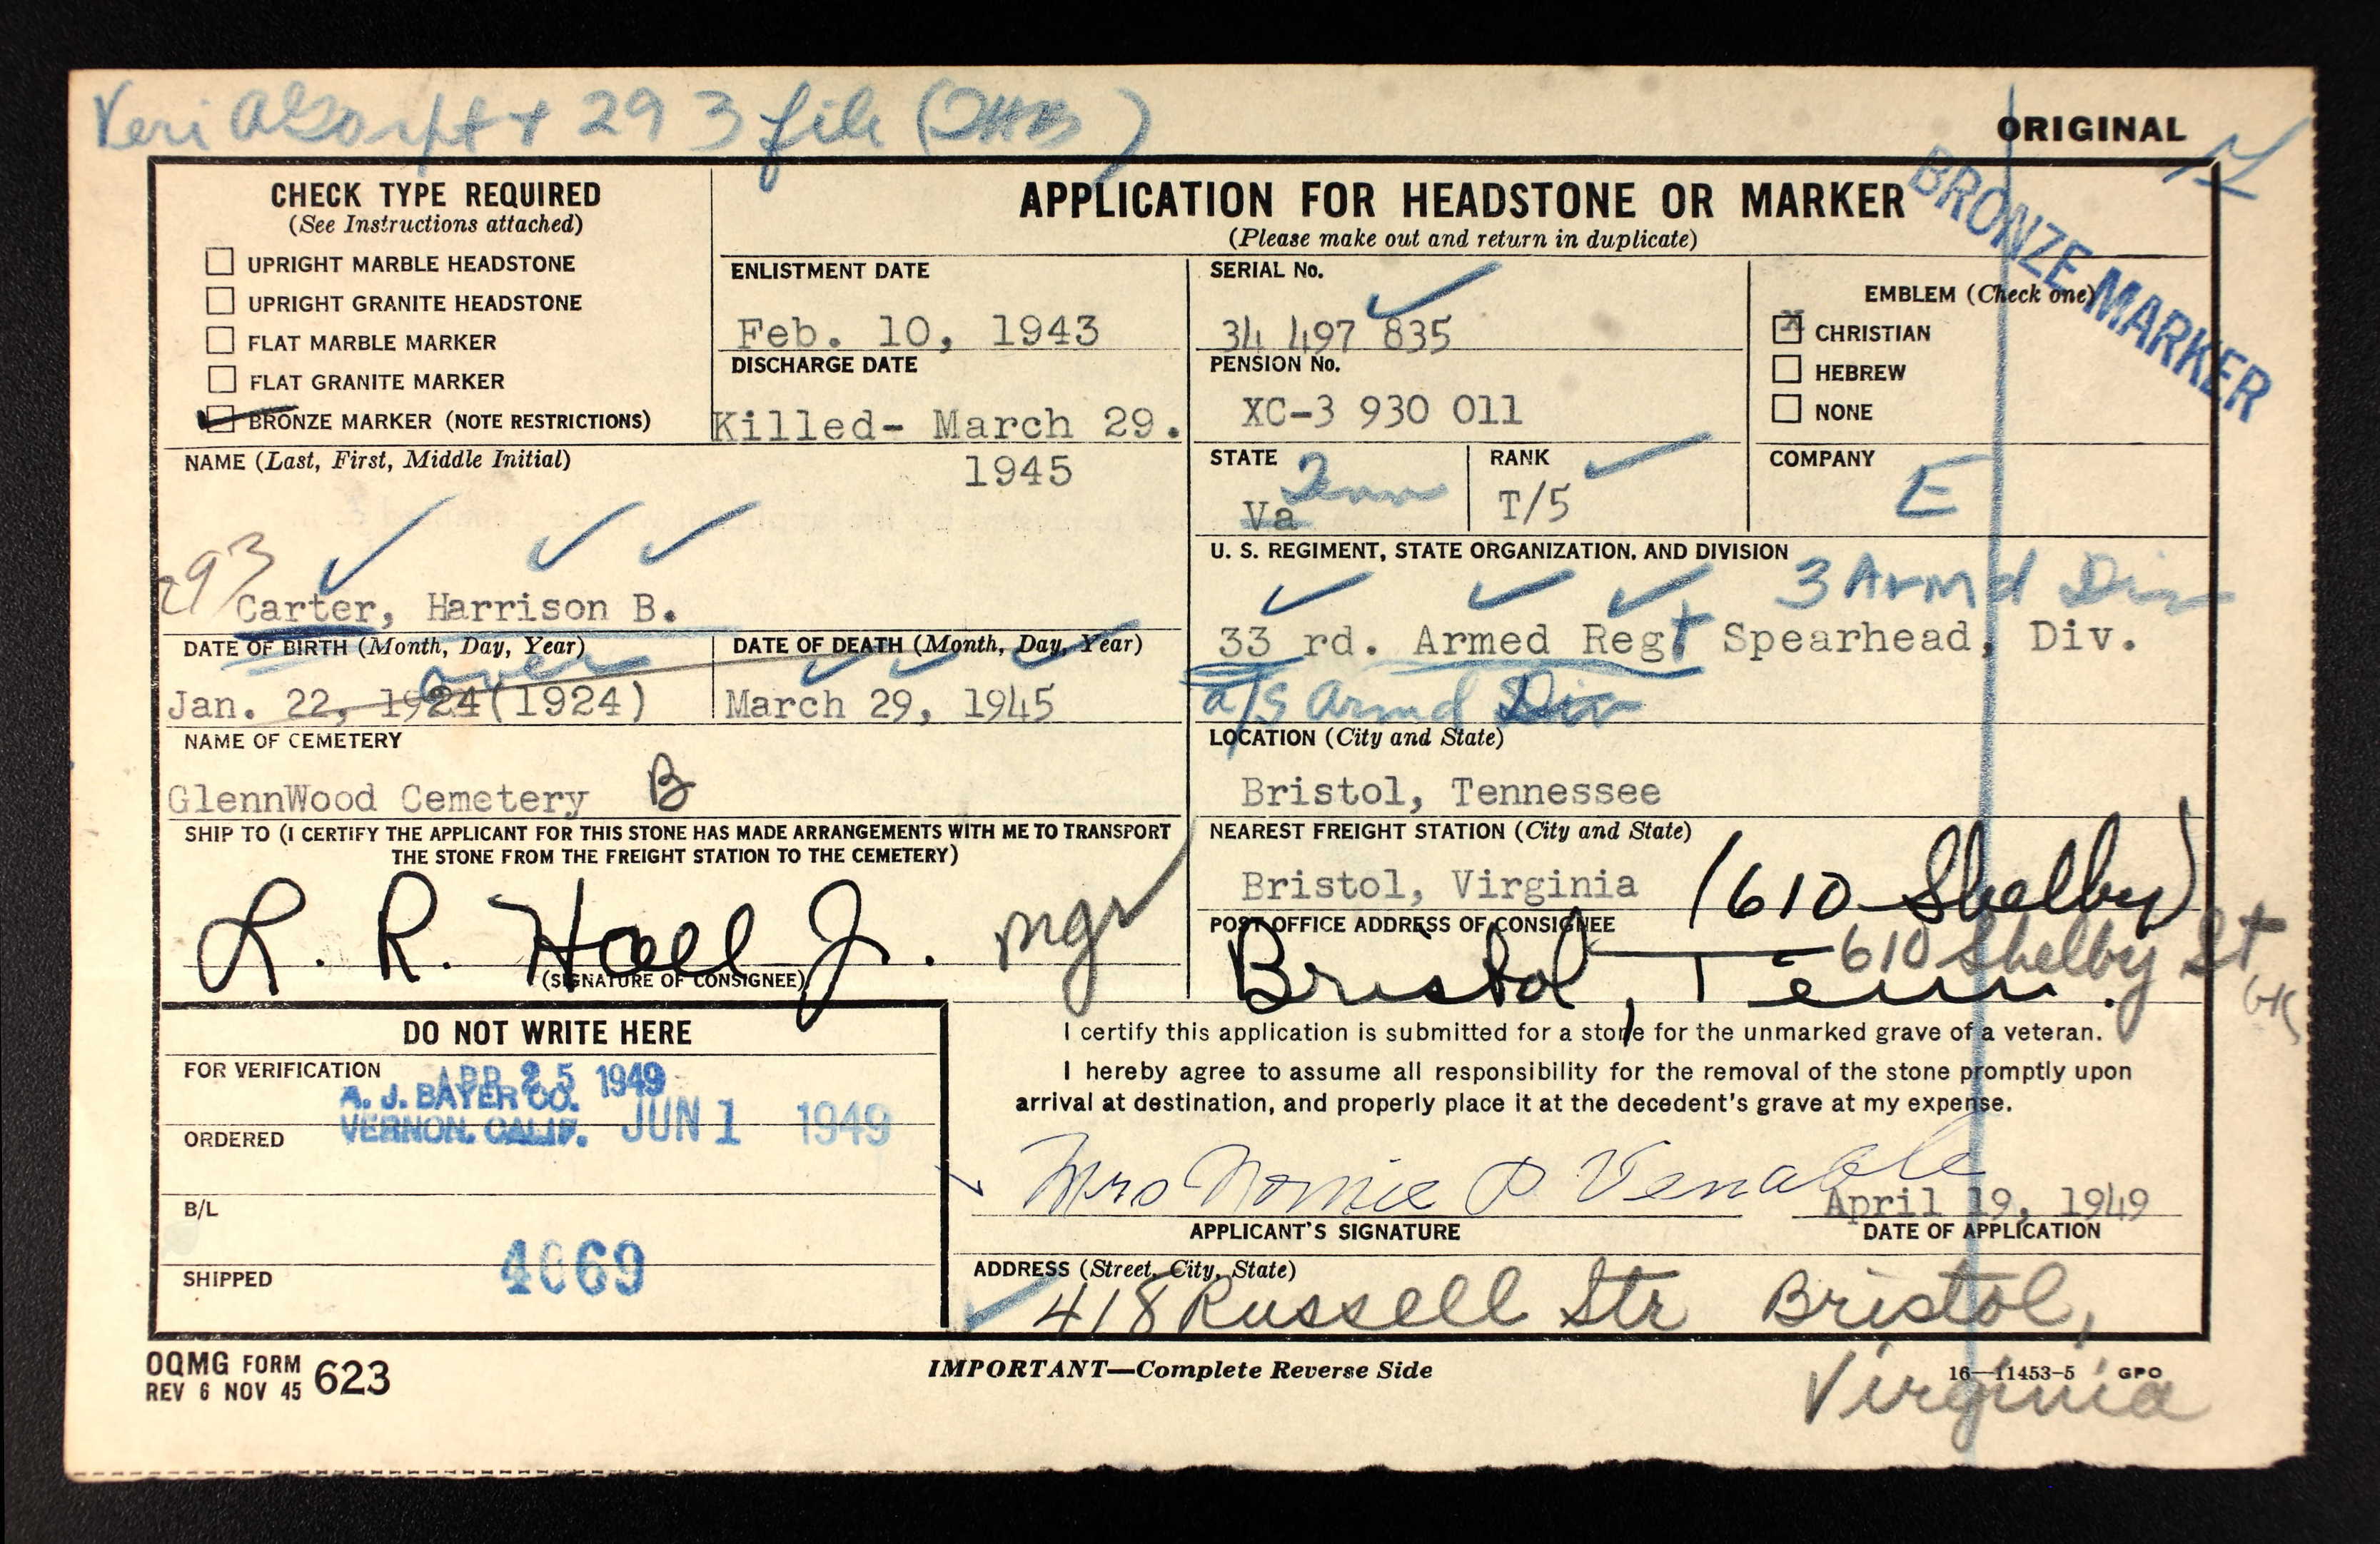 Veri 293 file
ORIGINAL
BRONZE MARKER
CHECK TYPE REQUIRED
(See Instructions attached)
UPRIGHT MARBLE HEADSTONE
UPRIGHT GRANITE HEADSTONE
FLAT MARBLE MARKER
FLAT GRANITE MARKER
BRONZE MARKER (NOTE RESTRICTIONS)
APPLICATION FOR HEADSTONE OR MARKER
(Please make out and return in duplicate)
ENLISTMENT DATE
Feb. 10, 1943
DISCHARGE DATE
Killed- March 29.
1945
SERIAL No.
34 497 835
PENSION No.
XC-3 930 011
EMBLEM (Check one)
x CHRISTIAN
HEBREW
NONE
NAME (Last, First, Middle Initial)
293
Carter, Harrison B.
STATE
Va Tenn
RANK
T/5
COMPANY
E
U. S. REGIMENT, STATE ORGANIZATION, AND DIVISION
3 Armd Div
33 rd. Armed Regt Spearhead, Div.
a/s Armd Div
DATE OF BIRTH (Month, Day, Year)
over
Jan. 22, 1924(1924)
DATE OF DEATH (Month, Day, Year)
March 29, 1945
NAME OF CEMETERY
GlennWood Cemetery B
LOCATION (City and State)
Bristol, Tennessee
SHIP TO (I CERTIFY THE APPLICANT FOR THIS STONE HAS MADE ARRANGEMENTS WITH ME TO TRANSPORT
THE STONE FROM THE FREIGHT STATION TO THE CEMETERY)
L. R. Hall Jr. mgr
(SIGNATURE OF CONSIGNEE)
NEAREST FREIGHT STATION (City and State)
Bristol, Virginia (610 Shelby)
POST OFFICE ADDRESS OF CONSIGNEE
610 Shelby St
Bristol, Tenn.
DO NOT WRITE HERE
FOR VERIFICATION
APR 25 1949
A. J. BAYER CO.
VERNON, CALIF. JUN 1 1949
ORDERED
B/L
4069
SHIPPED
I certify this application is submitted for a stone for the unmarked grave of a veteran.
I hereby agree to assume all responsibility for the removal of the stone promptly upon
arrival at destination, and properly place it at the decedent's grave at my expense.
Mrs Nomie P Venable
April 19, 1949
APPLICANT'S SIGNATURE
DATE OF APPLICATION
ADDRESS (Street, City, State)
418 Russell Str Bristol,
Virginia
OQMG FORM 623
REV 6 NOV 45
IMPORTANT—Complete Reverse Side
16—11453-5 GPO